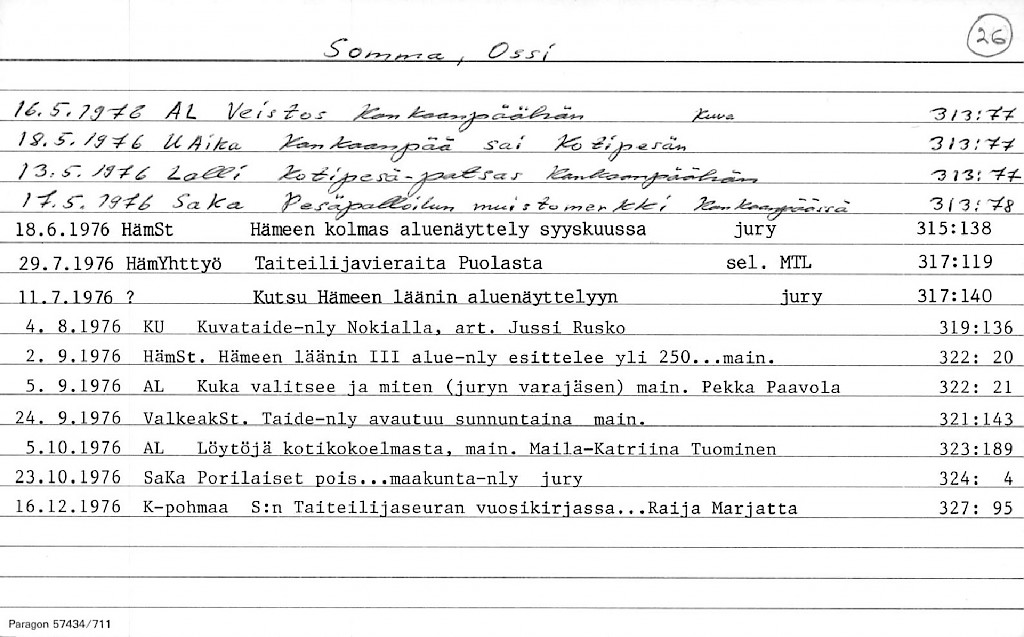 Somma, Ossi
26
16.5.1976 AL Veistos Kankaanpäähän Kuva 313:77
18.5.1976 UAika Kankaanpää sai Kotipesän 313:77
13.5.1976 Lalli Kotipesä-patsas Kankaanpäähän 313:77
17.5.1976 SaKa Pesäpalloilun muistomerkki Kankaanpäässä 313:78
18.6.1976 HämSt Hämeen kolmas aluenäyttely syyskuussa jury 315:138
29.7.1976 HämYhttyö Taiteilijavieraita Puolasta sel. MTL 317:119
11.7.1976 ? Kutsu Hämeen läänin aluenäyttelyyn jury 317:140
4. 8.1976 KU Kuvataide-nly Nokialla, art. Jussi Rusko 319:136
2. 9.1976 HämSt. Hämeen läänin III alue-nly esittelee yli 250...main. 322: 20
5. 9.1976 AL Kuka valitsee ja miten (juryn varajäsen) main. Pekka Paavola 322: 21
24. 9.1976 ValkeakSt. Taide-nly avautuu sunnuntaina main. 321:143
5.10.1976 AL Löytöjä kotikokoelmasta, main. Maila-Katriina Tuominen 323:189
23.10.1976 SaKa Porilaiset pois...maakunta-nly jury 324: 4
16.12.1976 K-pohmaa S:n Taiteilijaseuran vuosikirjassa...Raija Marjatta 327: 95
Paragon 57434/711